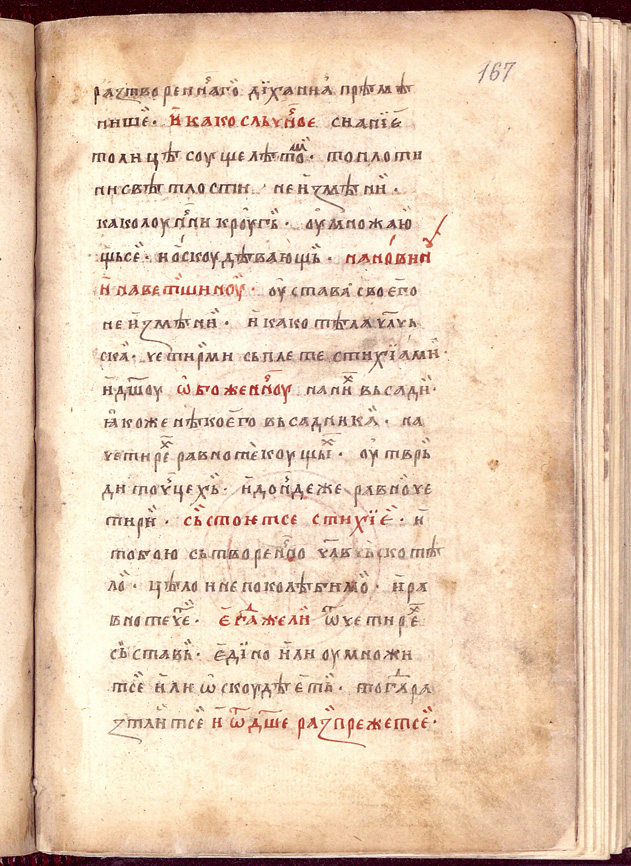 167
растворенⷩ҇аго дїханиꙗ прѣмѣ
нише · и како слъуⷩ҇ое сиꙗнїе
толицѣ соуще лѣтоⷨ · топлоти
ни свѣтлости неизмѣни ·
како лоуⷩ҇ни кроугь · оумножаю
щьсе · и оскоудѣвающь · на новини
и на ветⷯшиноу · оустава своего
неизмѣни · и како тѣла чл҃чь
ска · четирми сьплете стихїами ·
и дш҃оу ѡбоженⷩ҇оу на ниⷯ вьсади ·
ꙗкоже нѣкоего вьсадника · на
четиреⷯ равнотекоущыⷯ · оутврь
ди тоучехь · и дондеже равно че
тири · сьстоитсе стихїе · и
тобою сьтворенⷩ҇о чл҃вчьско тѣ
ло · цѣло и непоколѣбимо · и ра
внотече · егⷣа жели ѿ четиреⷯ
сьставь · едїно или оумножи
тсе или ѡскоудѣеть · тогⷣа ра
стлитсе и ѿ дш҃е распрежетсе ·